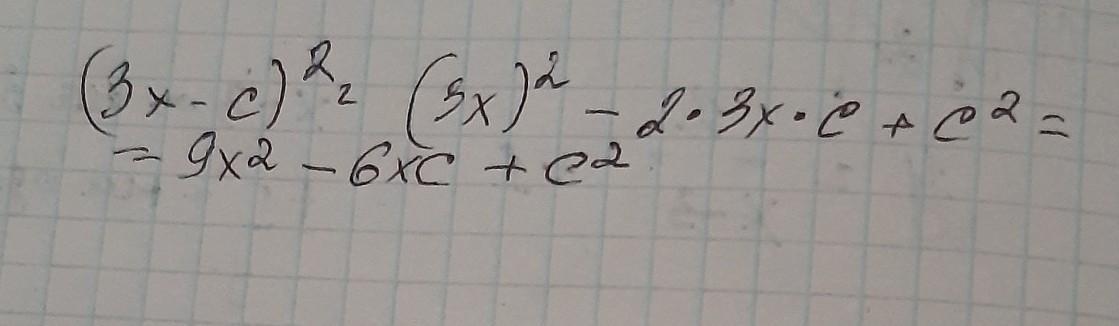 (3x - c)² = (3x)² - 2·3x·c + c² =
= 9x2 - 6xc + c²